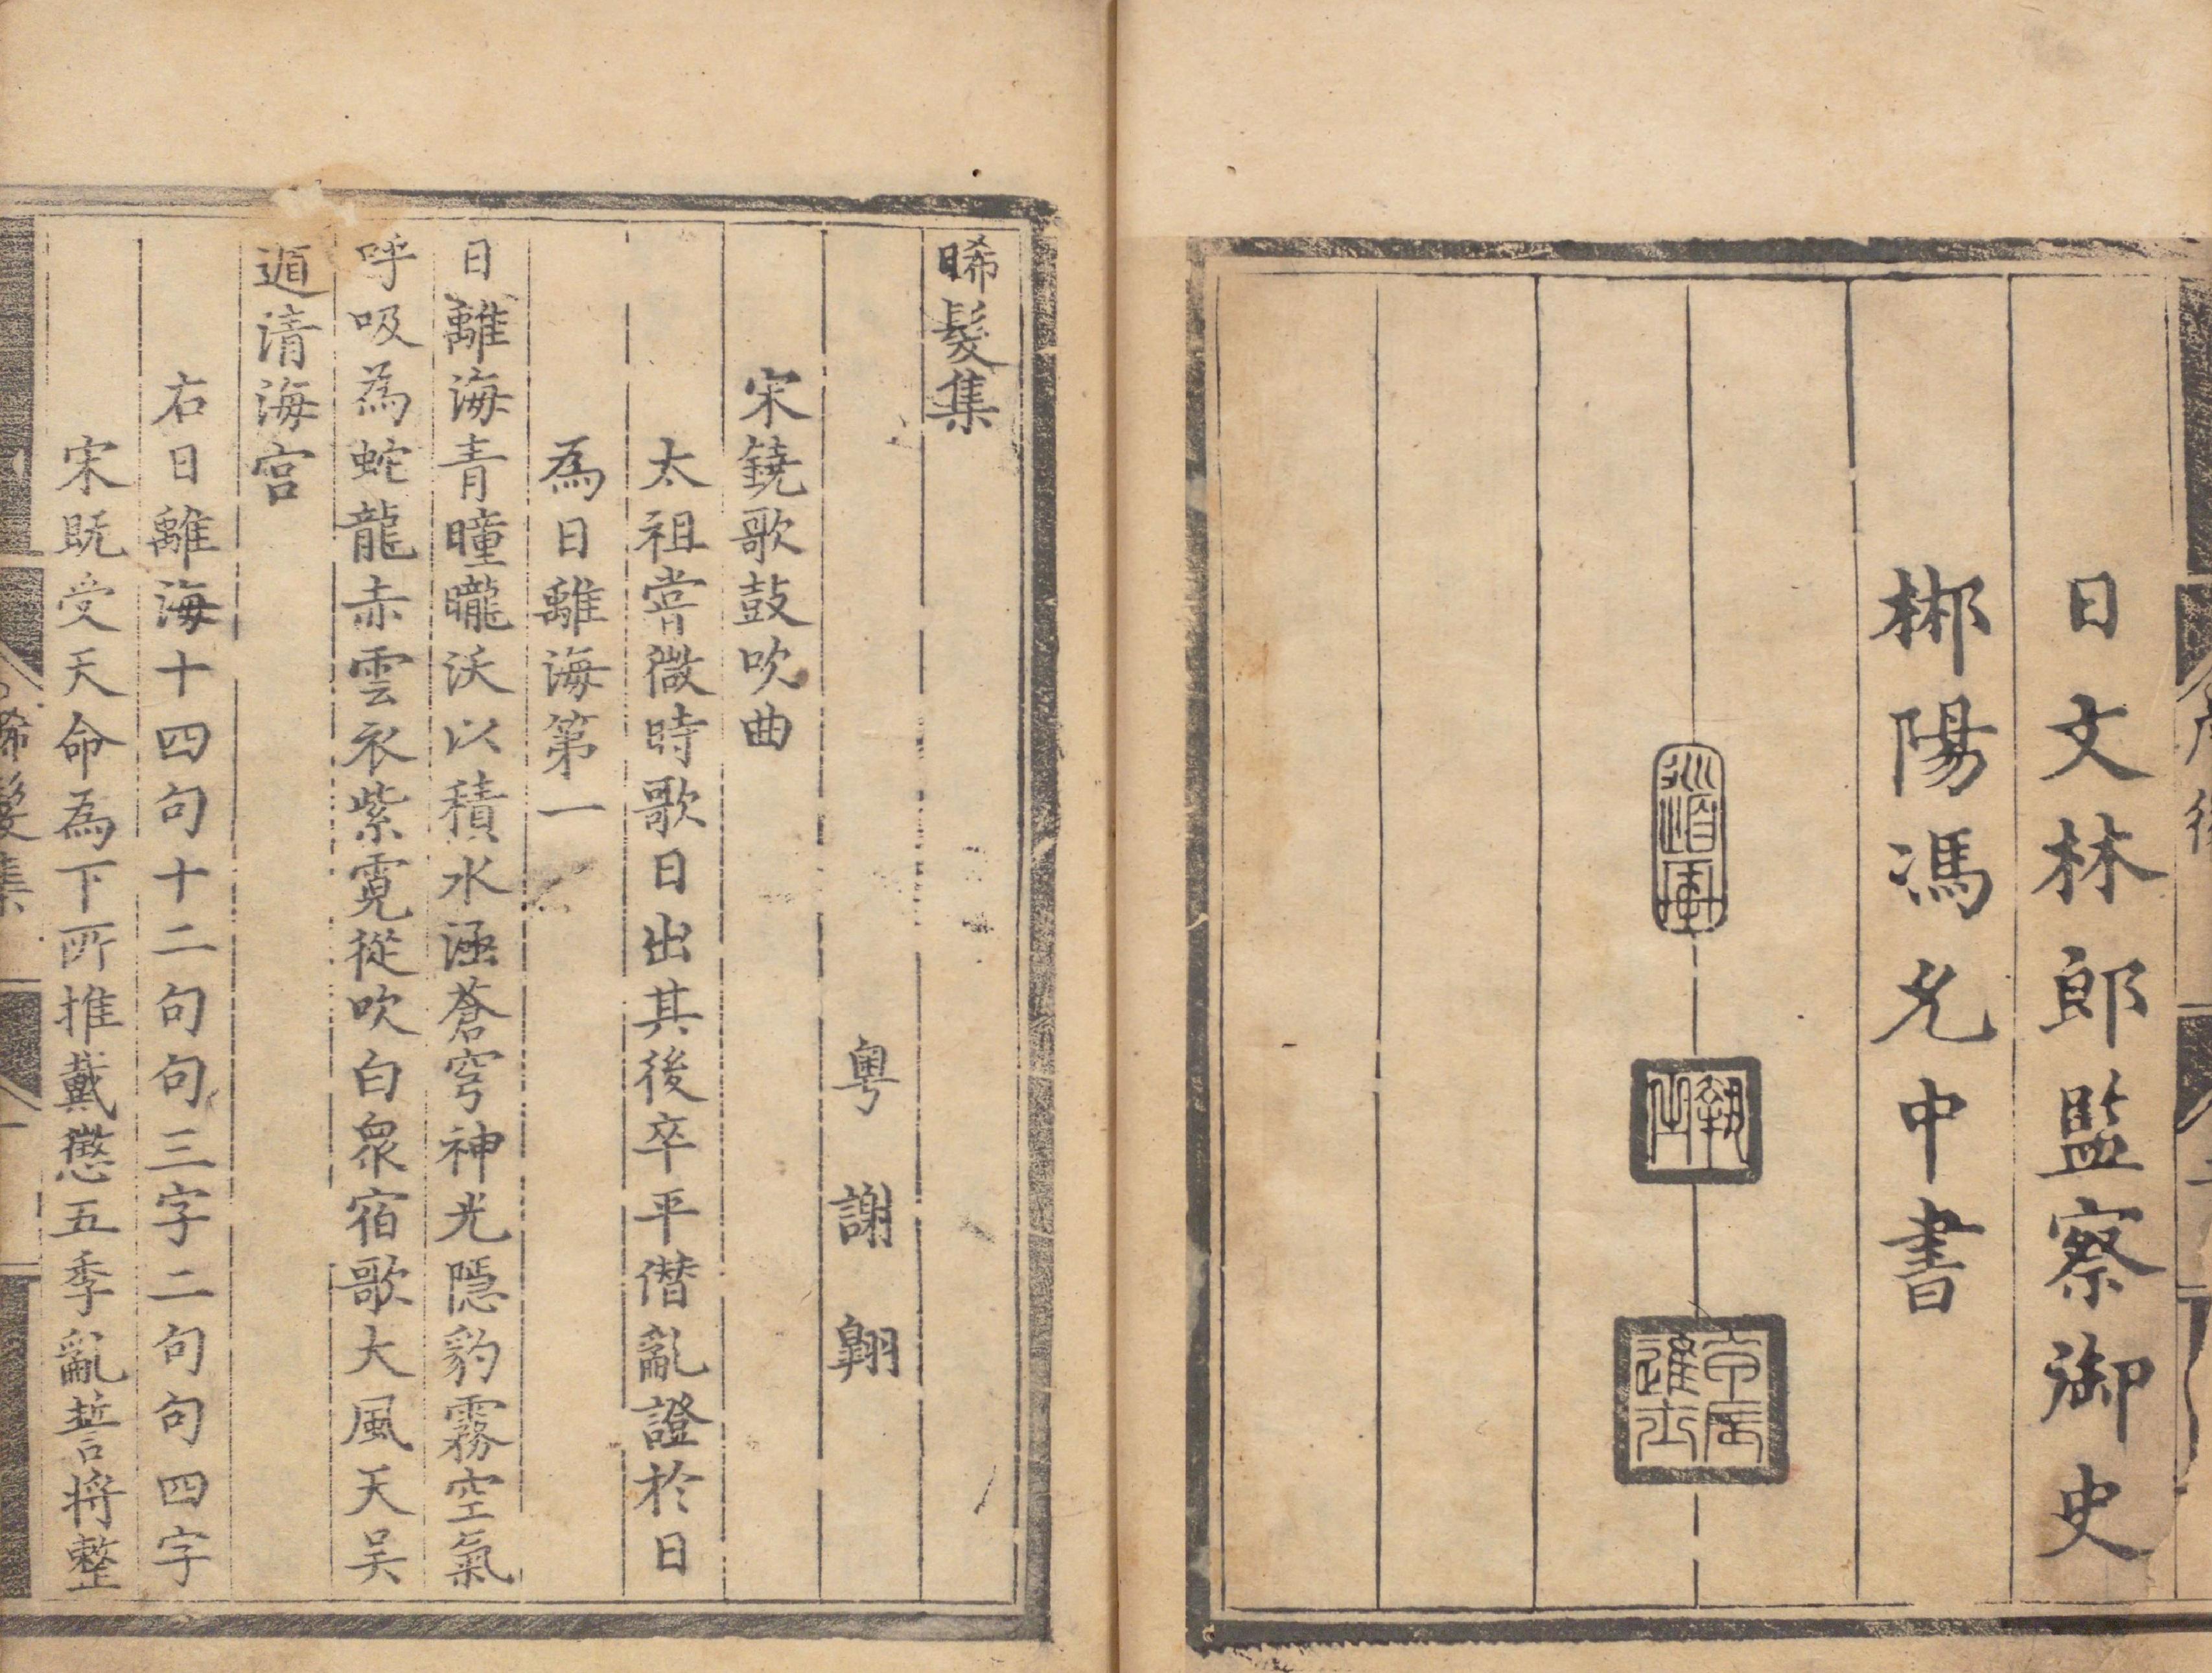 日文林郎監察御史
郴陽馮允中書
晞髮集
粵謝翱
宋鐃歌鼓吹曲
太祖嘗微時歌日出其後卒平僭亂證於日
為日離海第一
日離海青曈曨沃以積水涵蒼穹神光隱豹霧空氣
呼吸為蛇龍赤雲衣紫霓從吹白衆宿歌大風天吴
遁清海宮
右日離海十四句十二句句三字二句句四字
宋既受天命為下所推戴懲五季亂誓将整
晞髮集